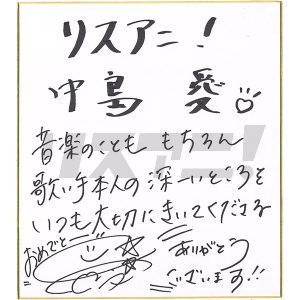 リスアニ!
中島 愛
音楽のことも もちろん
歌い手本人の深ーいところを
いつも大切にきいてくださる
おめでとー
ありがとう
ございます!!
リスアニ!